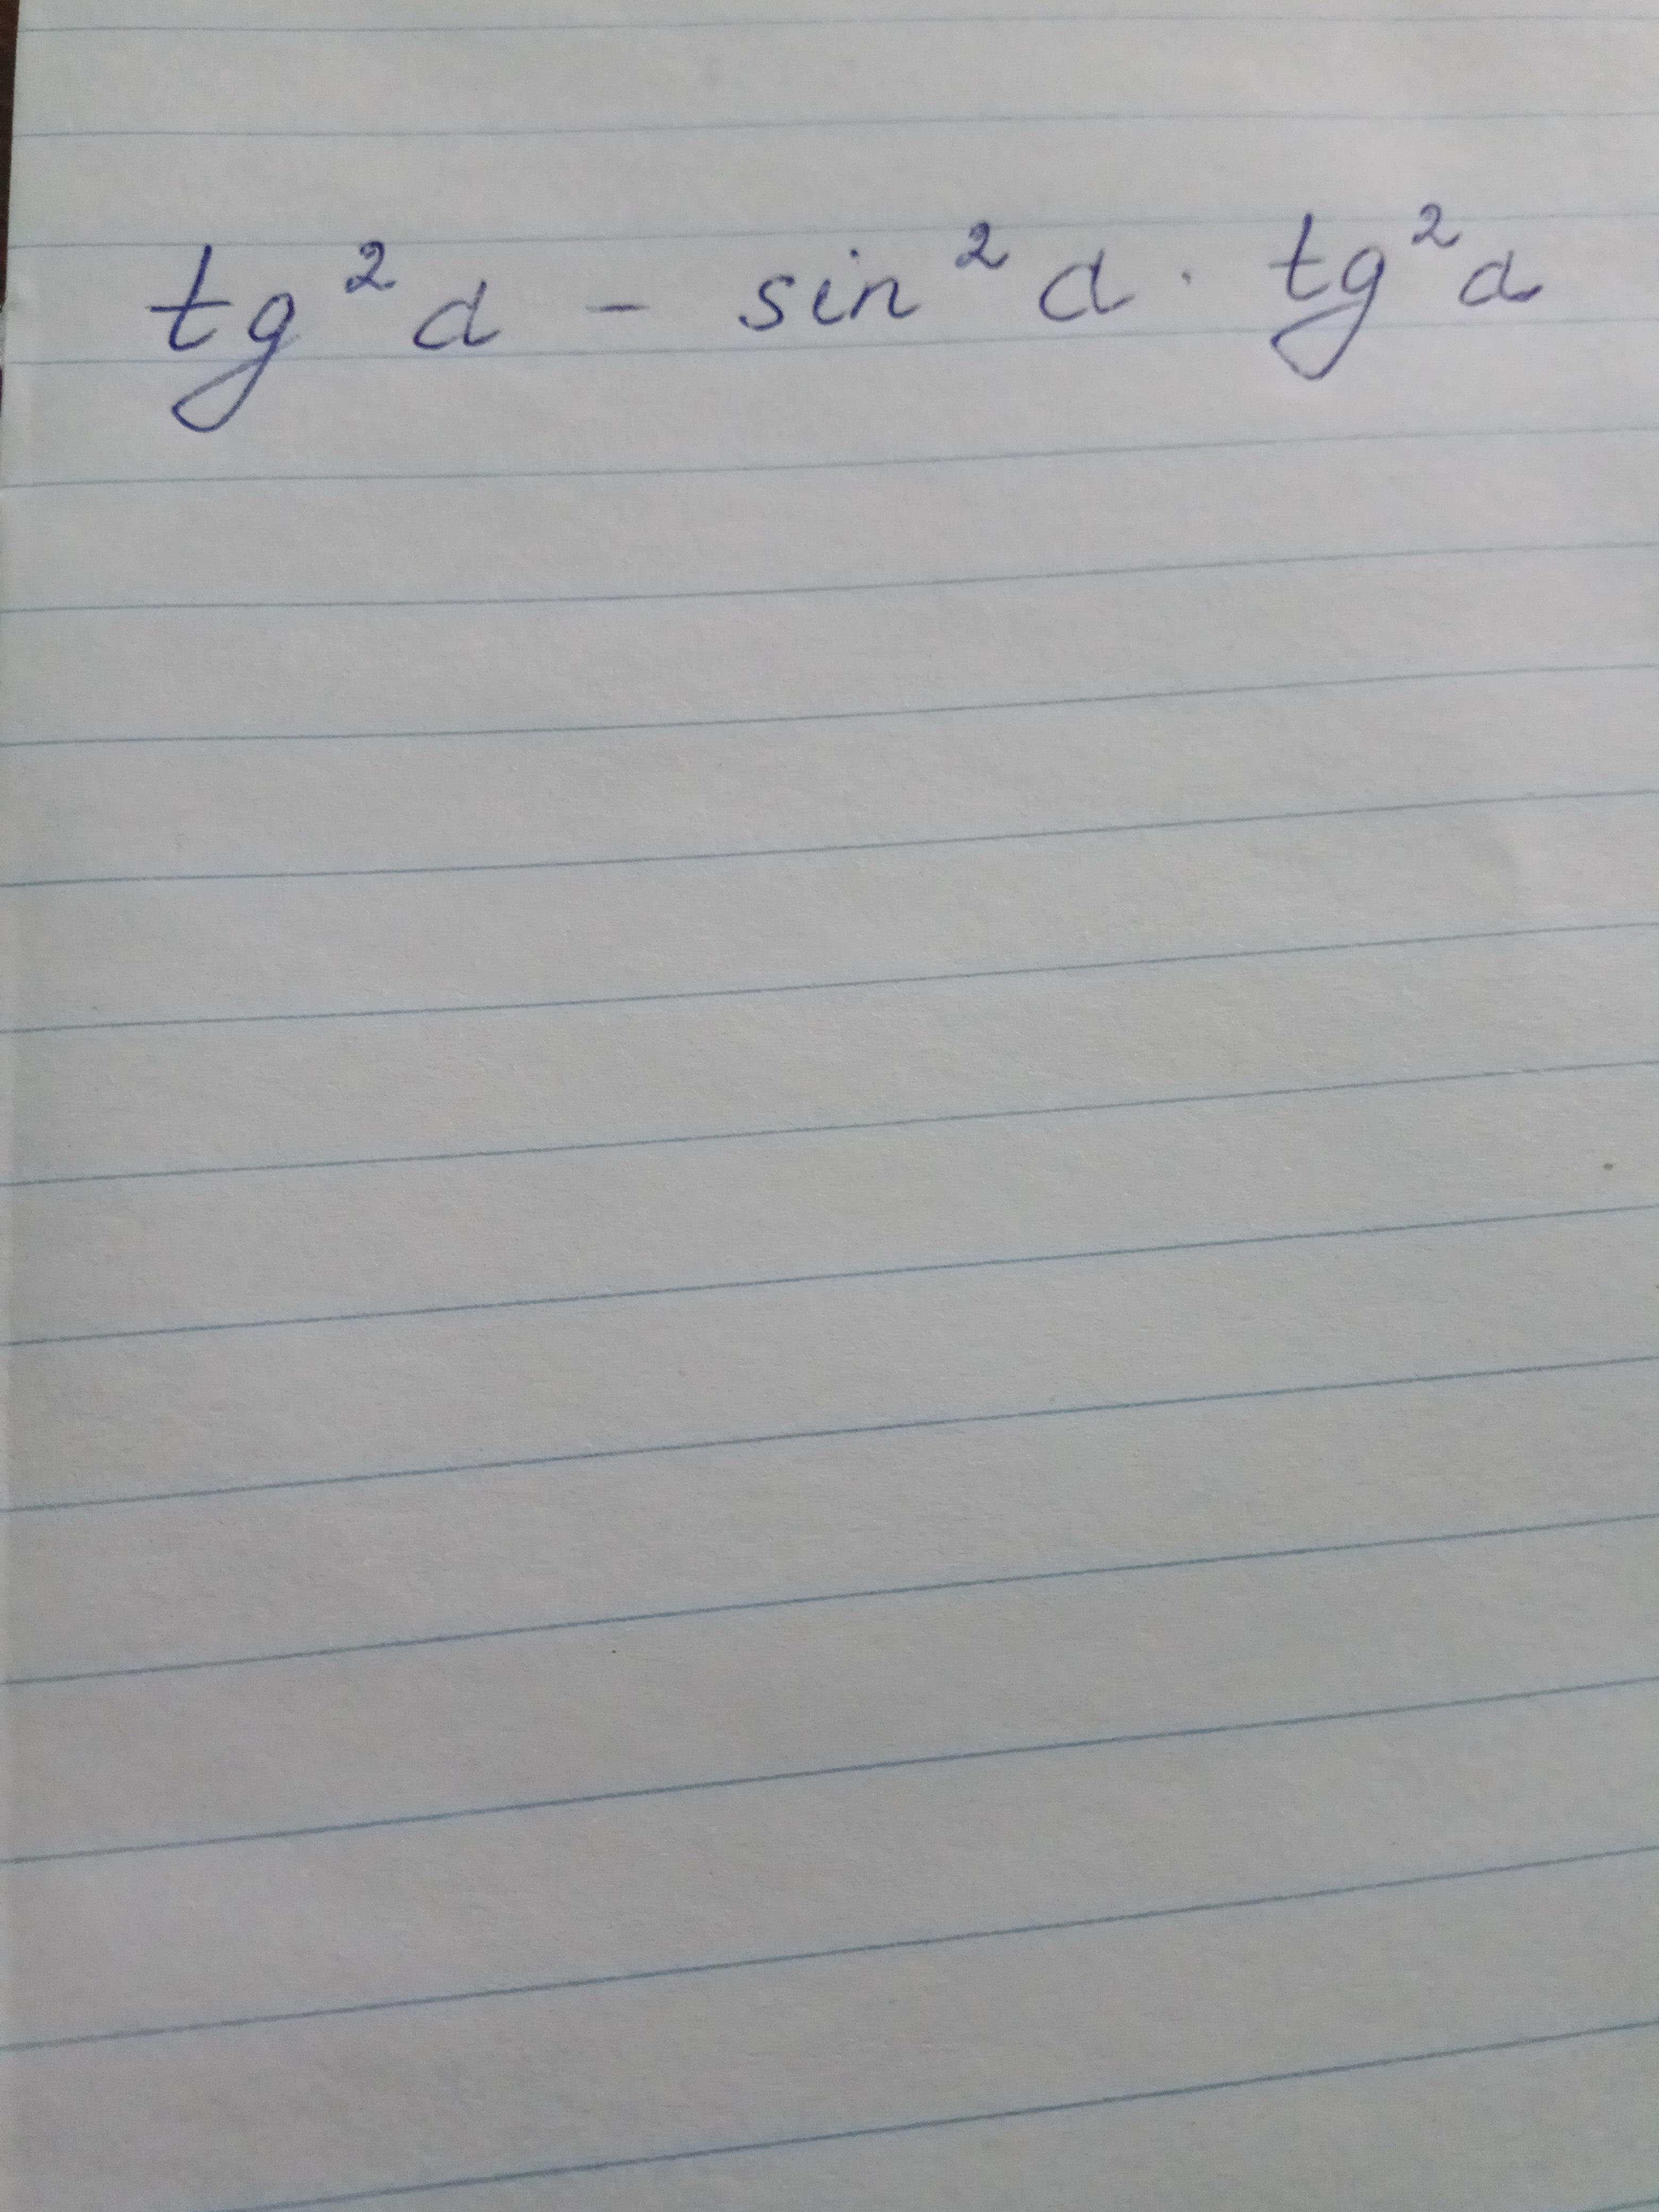 tg² α - sin² α · tg² α